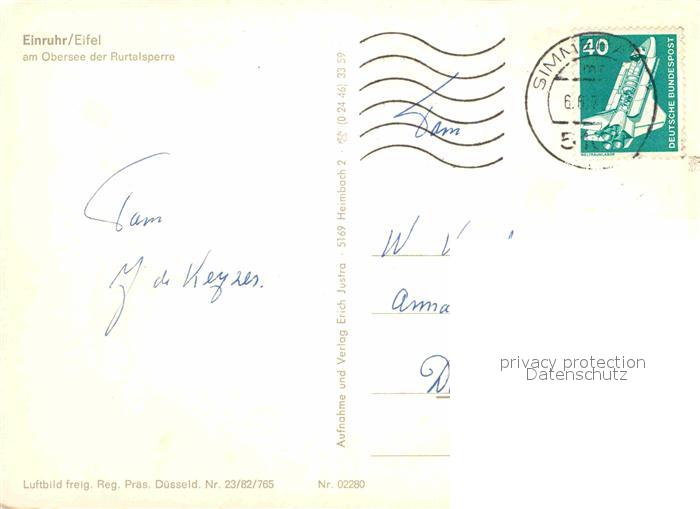 Einruhr/Eifel
am Obersee der Rurtalsperre
Fam
Y de Keyzer.
Luftbild freig. Reg. Präs. Düsseld. Nr. 23/82/765 Nr. 02280
Aufnahme und Verlag Erich Justra · 5169 Heimbach 2 · ☎ (0 24 46) 33 59
40
DEUTSCHE BUNDESPOST
WELTRAUMLABOR
SIMM
6.
Fam
W V
Anna
D
privacy protection
Datenschutz